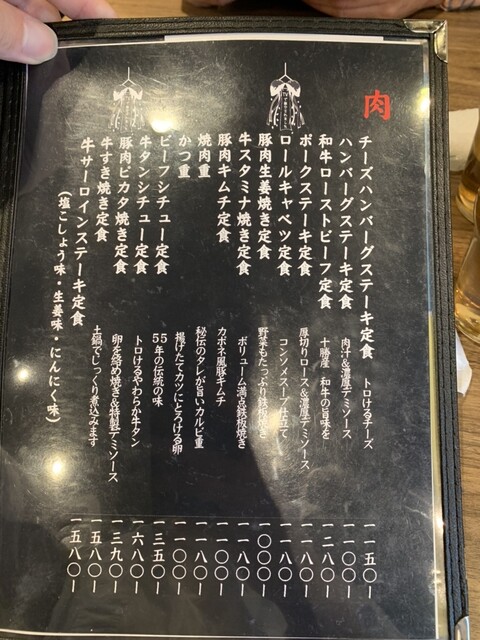 肉
チーズハンバーグステーキ定食 トロけるチーズ 一一五〇ー
ハンバーグステーキ定食 肉汁&濃厚デミソース 一〇〇〇ー
和牛ローストビーフ定食 十勝産 和牛の旨味を 一二八〇ー
ポークステーキ定食 厚切りロース&濃厚デミソース 一一八〇ー
ロールキャベツ定食 コンソメスープ仕立て 一一八〇ー
豚肉生姜焼き定食 野菜もたっぷり鉄板焼き 一〇〇〇ー
牛スタミナ焼き定食 ボリューム満点鉄板焼き 一一八〇ー
豚肉キムチ定食 カポネ風豚キムチ 一一〇〇ー
焼肉重 秘伝のタレが旨いカルビ重 一一八〇ー
かつ重 揚げたてカツにとろける卵 一一〇〇ー
ビーフシチュー定食 55年の伝統の味 一三五〇ー
牛タンシチュー定食 トロけるやわらか牛タン 一六八〇ー
豚肉ピカタ焼き定食 卵を絡め焼き&特製デミソース 一三九〇ー
牛すき焼き定食 土鍋でじっくり煮込みます 一五八〇ー
牛サーロインステーキ定食 一五八〇ー
(塩こしょう味・生姜味・にんにく味)